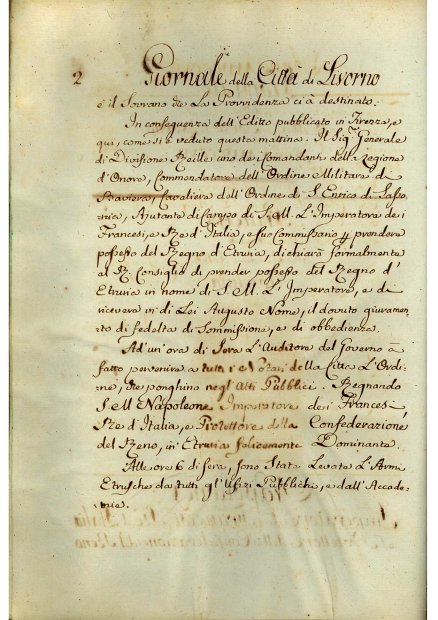 2 Giornale della Città di Livorno
è il Sovrano che La Provvidenza ci à destinato.
In conseguenza dell'Editto pubblicato in Firenze, e
qui, come si è veduto questa mattina. Il Sig.r Generale
di Divisione Reille uno dei Comandanti della Legione
d'Onore, Commendatore dell'Ordine Militare di
Baviera, Cavaliere dell'Ordine di S. Enrico di Sasso-
nia, Ajutante di Campo di S. M. L'Imperatore dei
Francesi, e Re d'Italia, e suo Commissario p prendere
possesso del Regno d'Etruria, dichiarò formalmente
al R. Consiglio di prender possesso del Regno d'
Etruria in nome di S. M. L'Imperatore, e di
ricevere in di Lei Augusto Nome, il dovuto giuramen-
to di fedeltà di Sommissione, e di obbedienza.
Ad un'ora di sera L'Auditore del Governo à
fatto pervenire a tutti i Notari della Città L'Ordi-
ne, che ponghino negl'Atti Pubblici. Regnando
S. M. Napoleone Imperatore dei Francesi
Re d'Italia, e Protettore della Confederazione
del Reno, in Etruria felicemente Dominante.
Alle ore 6 di sera, sono State Levate L'Armi
Etrusche da tutti gl'Ufizi Pubblici, e dall'Accade-
mia.